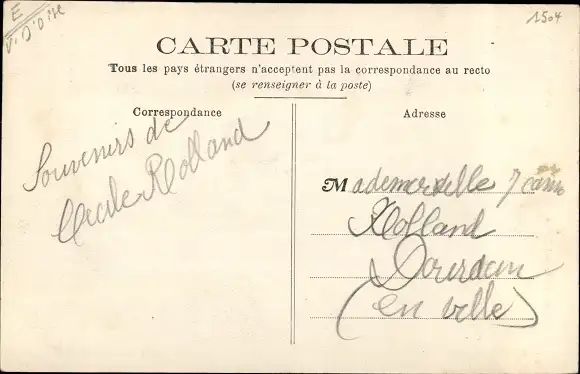 E
V. D'Oise
1504
CARTE POSTALE
Tous les pays étrangers n'acceptent pas la correspondance au recto
(se renseigner à la poste)
Correspondance
Souvenirs de
Cécile Rolland
Adresse
Mademoiselle Jeanne
Rolland
Dourdan
(en ville)